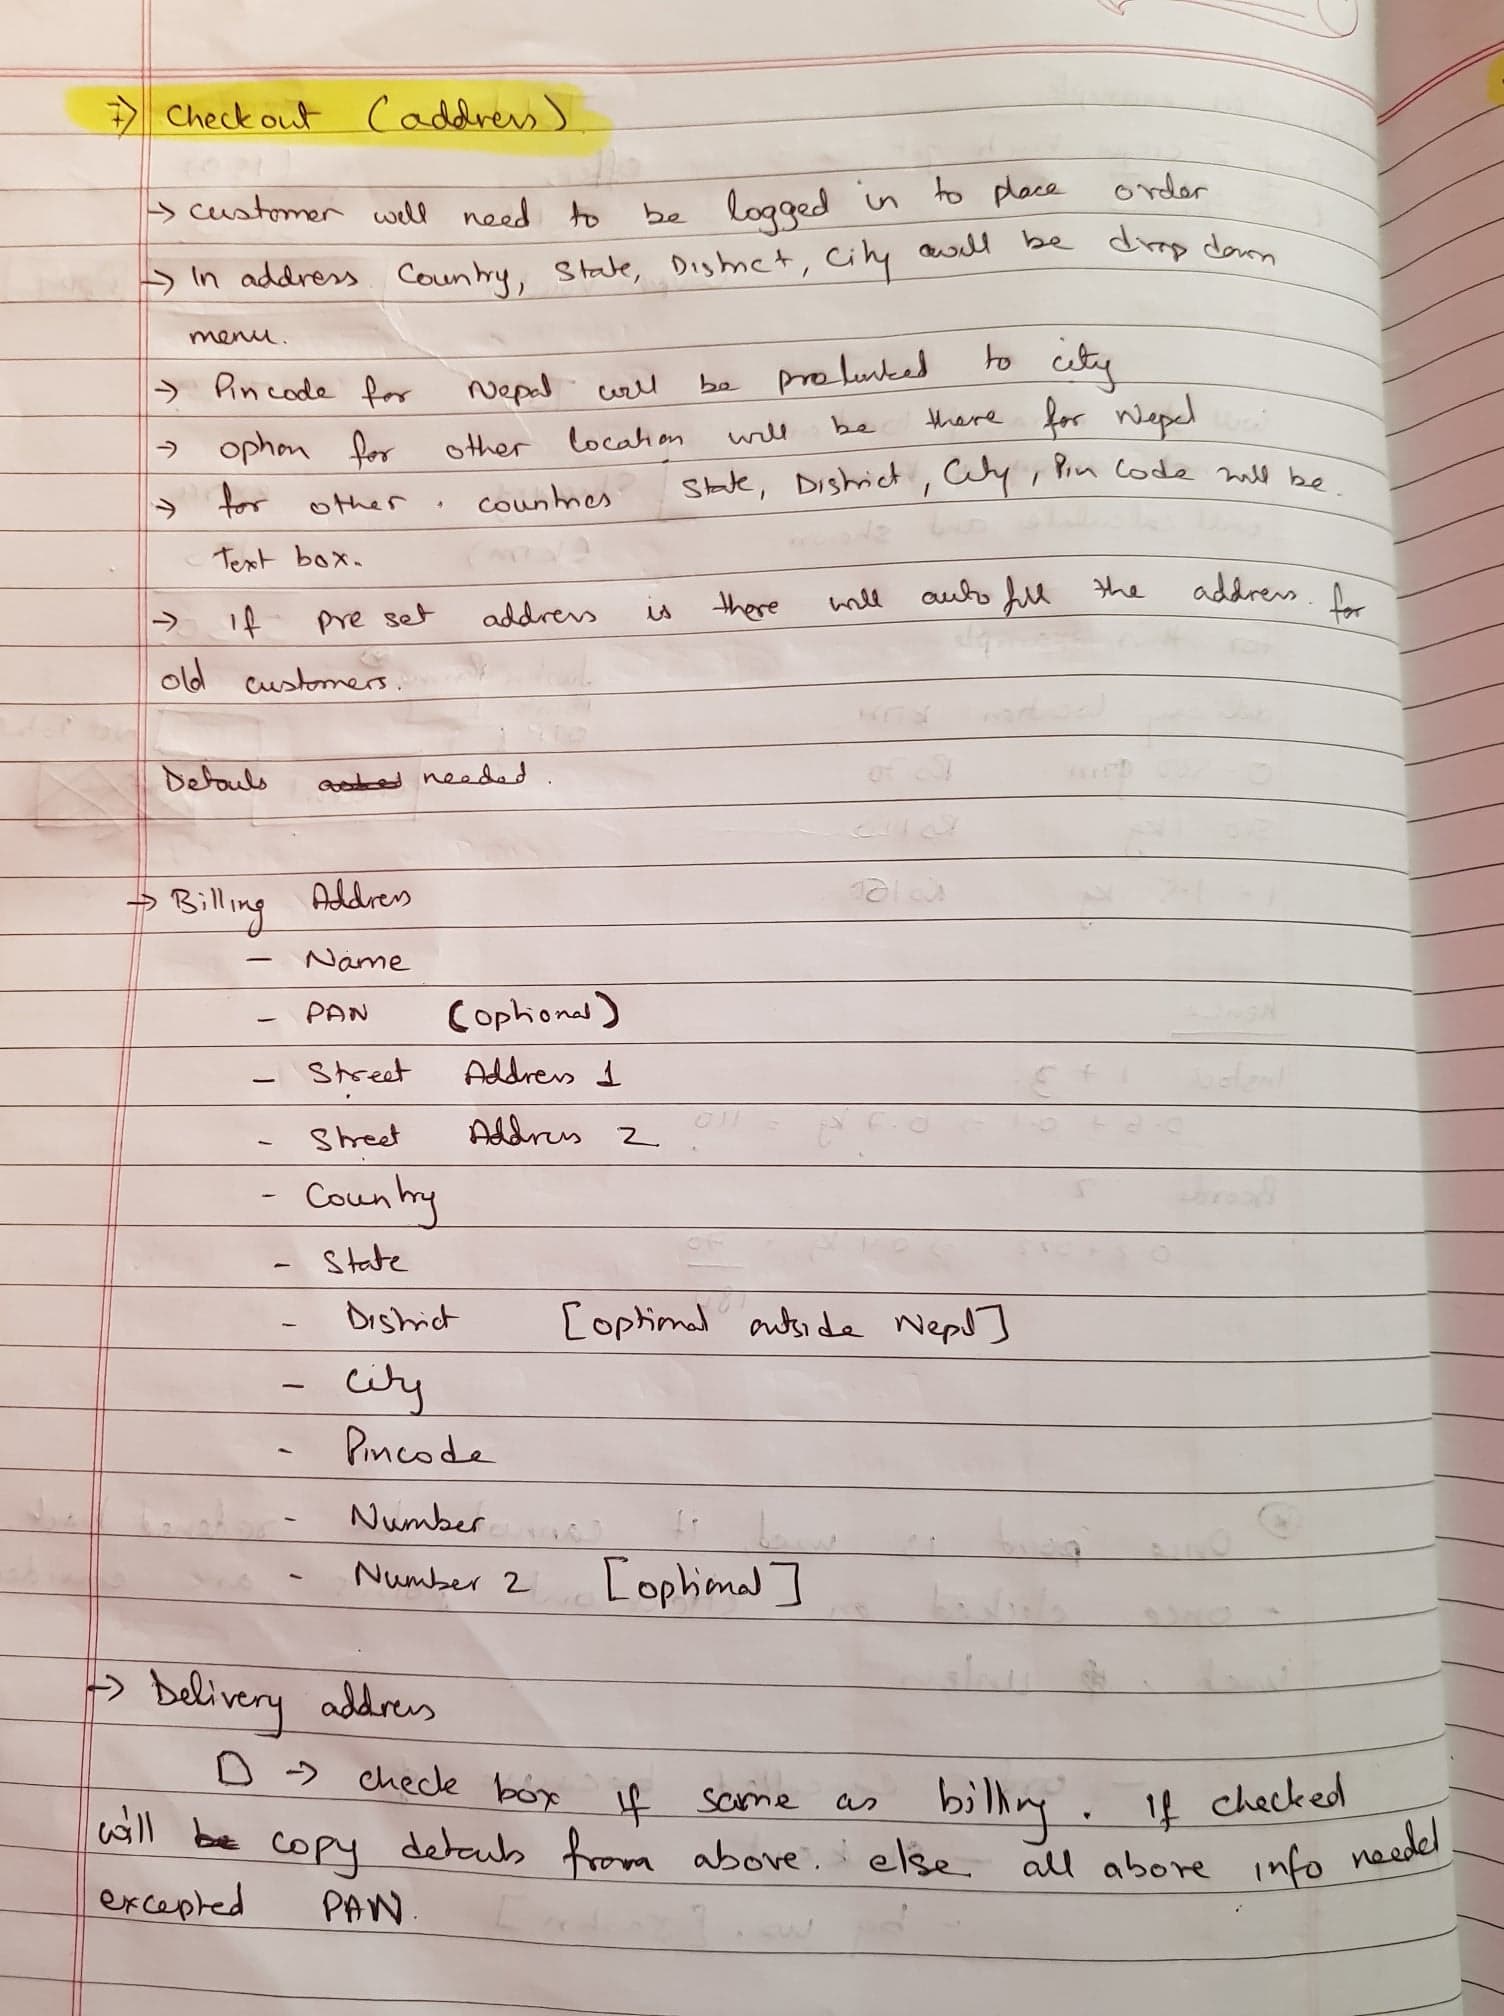 7) Checkout (address)
→ customer will need to be logged in to place order
→ In address Country, State, District, City will be drop down
menu.
→ Pincode for Nepal will be prelinked to city
→ option for other location will be there for Nepal
→ for other countries State, District, City, Pin Code will be
Text box.
→ if pre set address is there will auto fill the address for
old customers.
Details needed.
→ Billing Address
- Name
- PAN (optional)
- Street Address 1
- Street Address 2
- Country
- State
- District [optional outside Nepal]
- City
- Pincode
- Number
- Number 2 [optional]
→ Delivery address
→ check box if same as billing. If checked
will copy details from above. else all above info needed
excepted PAN.